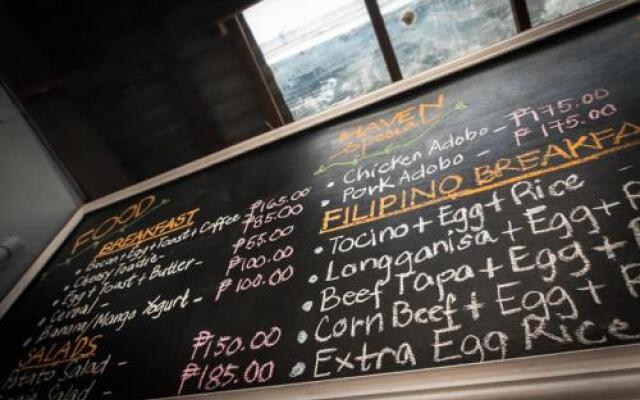 FOOD
BREAKFAST
Bacon+Egg+Toast+Coffee ₱165.00
Cheesy Toastie- ₱85.00
Egg+Toast+Butter- ₱55.00
Cereal- ₱100.00
Banana/Mango Yogurt- ₱100.00
SALADS
Potato Salad - ₱150.00
₱185.00
HAVEN
Special
• Chicken Adobo - ₱175.00
• Pork Adobo - ₱175.00
FILIPINO BREAKFA
• Tocino + Egg + Rice -
• Longganisa + Egg +
• Beef Tapa + Egg +
• Corn Beef + Egg +
• Extra Egg Rice